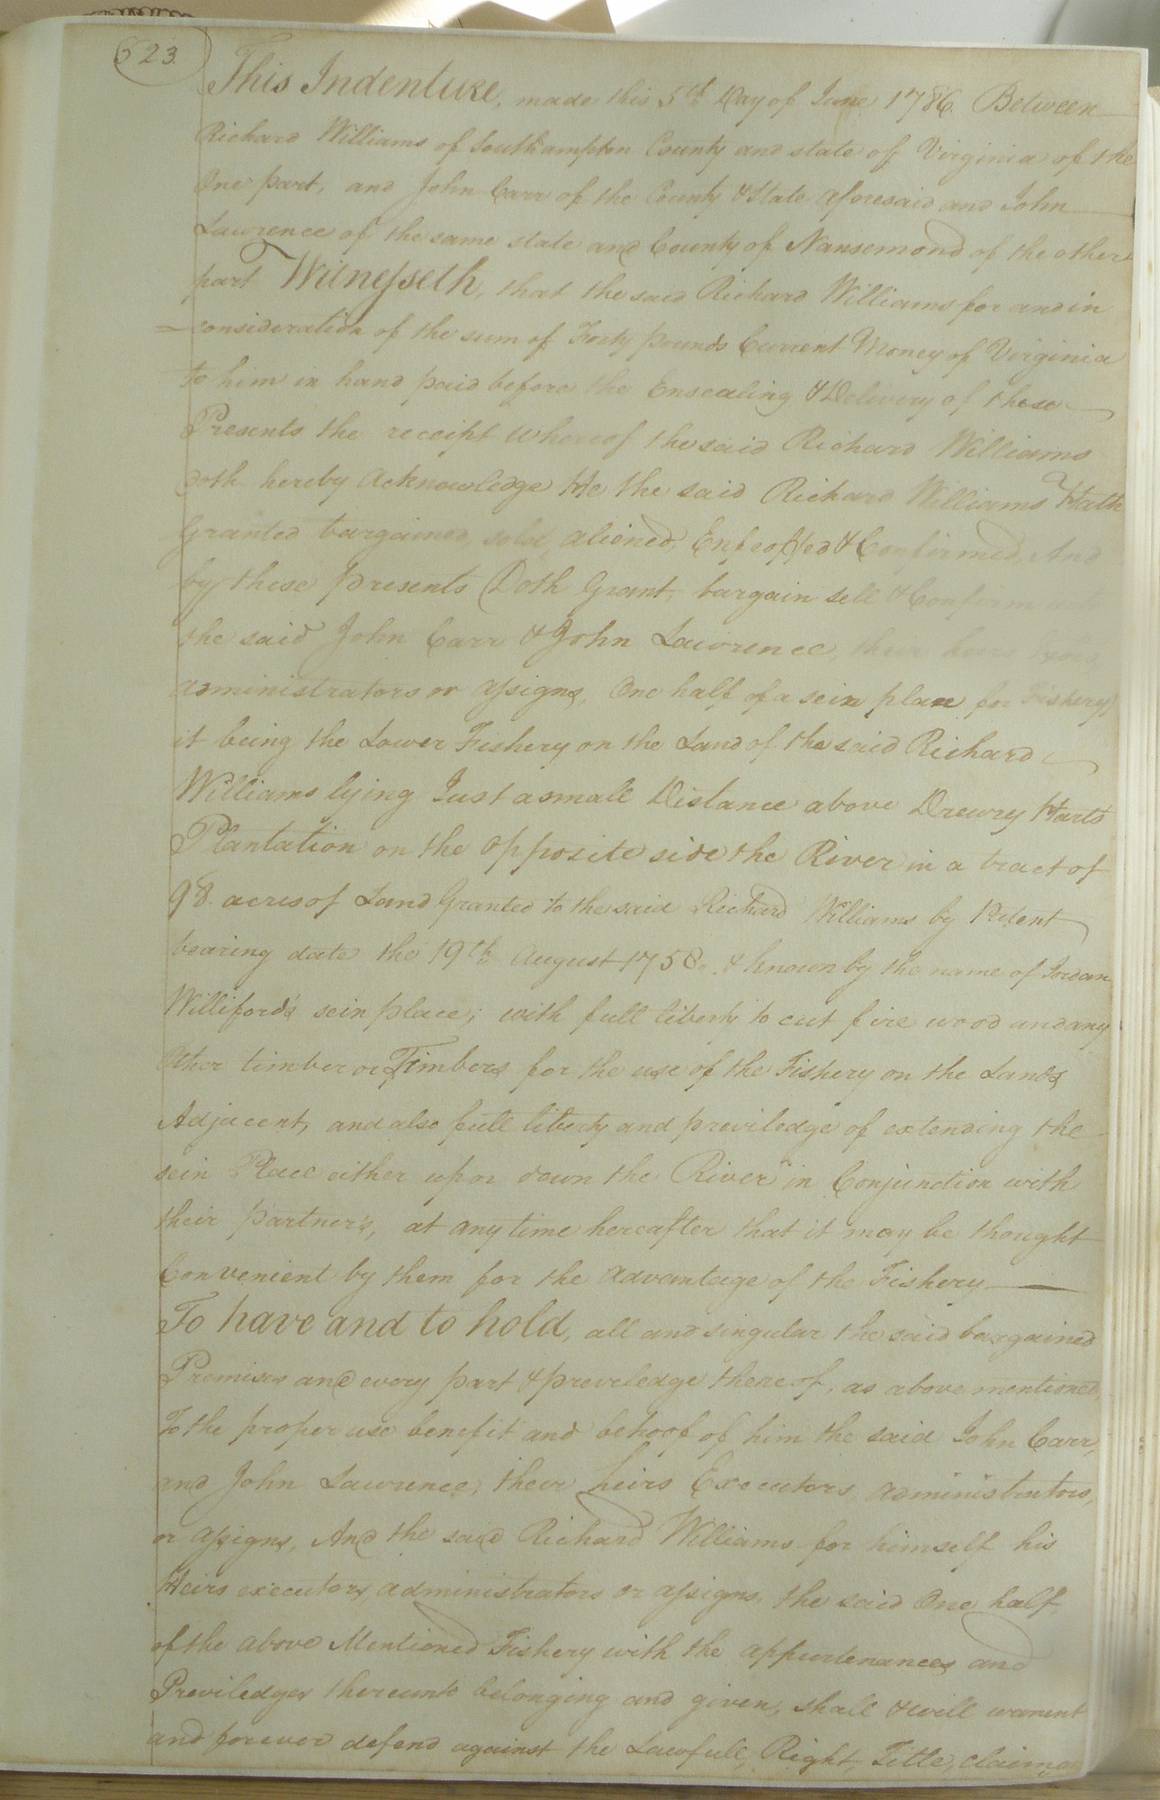 523
This Indenture, made this 5th Day of June 1786 Between
Richard Williams of Southampton County and state of Virginia of the
One part, and John Carr of the County & State aforesaid and John
Lawrence of the same state and County of Nansemond of the other
part Witnesseth, that the said Richard Williams for and in
consideration of the sum of Forty pounds Current Money of Virginia
to him in hand paid before the Ensealing & Delivery of these
Presents the receipt whereof the said Richard Williams
doth hereby Acknowledge He the said Richard Williams Hath
Granted bargained, sold, aliened, Enfeoffed & Confirmed, And
by these presents Doth Grant, bargain sell & Confirm unto
the said John Carr & John Lawrence, their heirs
administrators or assigns, One half of a sein place for Fishery
it being the Lower Fishery on the Land of the said Richard
Williams lying Just a small Distance above Drewry Harts
Plantation on the opposite side the River in a tract of
98 acres of Land Granted to the said Richard Williams by Patent
bearing date the 19th August 1758. & known by the name of Jordan
Williford's sein place; with full liberty to cut fire wood and any
Other timber or Timbers for the use of the Fishery on the Lands
Adjacent, and also full liberty and previledge of extending the
sein Place either up or down the River in Conjunction with
their partners, at any time hereafter that it may be thought
Convenient by them for the advantage of the Fishery
To have and to hold, all and singular the said bargained
Premises and every part & preveledge thereof, as above mentioned
To the proper use benefit and behoof of him the said John Carr,
and John Lawrence, their heirs Executors administrators,
or assigns, And the said Richard Williams for himself his
Heirs executors, administrators or assigns, the said One half
of the above Mentioned Fishery with the appurtenances and
Previledges thereunto belonging and given, shall & will warrent
and forever defend against the Lawfull, Right, Title, claim,